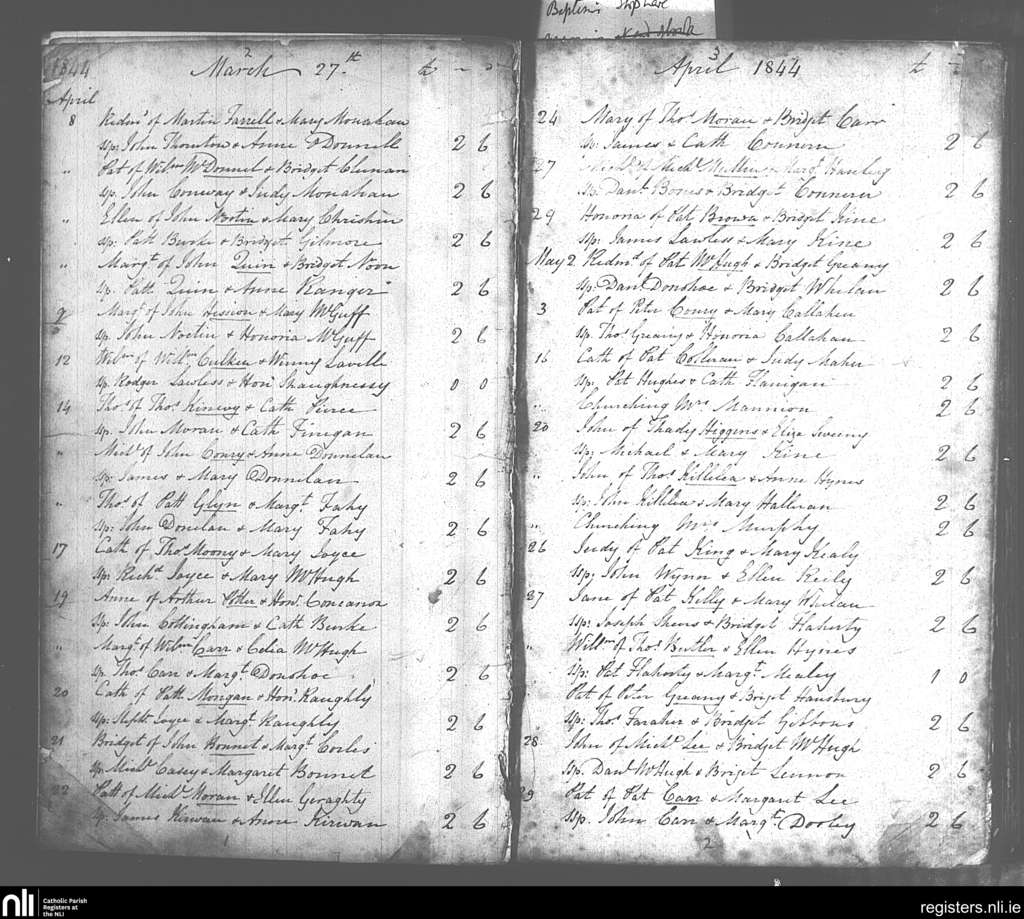 Baptisms
2
1844 March 27.th
April
8 Redm.d of Martin Farrell & Mary Monahan
sp: John Thornton & Anne O Donnell 2 6
" Pat of Will.m McDonnel & Bridget Clunan
sp. John Conway & Judy Monahan 2 6
" Ellen of John Noctin & Mary Christin
sp: Patt Burke & Bridget Gilmore 2 6
" Marg.t of John Quin & Bridget Noon
sp. Patt Quin & Anne Ranger 2 6
9 Marg.t of John Hession & Mary McGuff
sp. John Noctin & Honoria McGuff 2 6
12 Will.m of Will.m Culken & Winny Laville
sp. Rodger Lawless & Hon. Shaughnessy 0 0
14 Tho.s of Tho.s & Cath Peirce
sp. John Moran & Cath Finegan 2 6
" Mich.l of John Conry & Anne Donnelan
sp: James & Mary Donnelan 2 6
" Tho.s of Patt Glyn & Marg.t Fahy
sp: John Donelan & Mary Fahy 2 6
17 Cath of Tho.s Moony & Mary Joyce
sp: Rich.d Joyce & Mary McHugh 2 6
19 Anne of Arthur Potter & Hon. Concanon
sp: John Cottingham & Cath Burke 2 6
" Marg.t of Will.m Carr & Celia McHugh
sp. Tho.s Carr & Marg.t Donohoe 2 6
20 Cath of Patt Mongan & Hon. Raughly
sp: Steph.n Joyce & Marg.t Raughly 2 6
21 Bridget of John Bonnet & Marg.t Corles
sp. Mich.l Casey & Margaret Bonnet 2 6
22 Patt of Mich.l Moran & Ellen Geraghty
sp. James Kirwan & Anne Kirwan 2 6
3
April 1844
24 Mary of Tho.s Moran & Bridget Carr
sp. James & Cath Connern 2 6
27 Mich.l of Mich.l Mullin & Marg.t Hanley
sp. Dan.l & Bridget Connern 2 6
29 Honoria of Pat Brown & Bridget Kine
sp. James Lawless & Mary Kine 2 6
May 2 Redm.d of Pat McHugh & Bridget Greany
sp. Dan.l Donohoe & Bridget Whelan 2 6
3 Pat of Peter Conry & Mary Callahan
sp. Tho.s Greany & Honoria Callahan 2 6
16 Cath of Pat & Judy Maher
sp. Pat Hughes & Cath Flanigan 2 6
" Churching Mrs Mannion 2 6
20 John of Thady Higgens & Eliza Sweeny
sp; Michael & Mary Kine 2 6
" John of Tho.s Killilea & Anne Hynes
sp: John Killilea & Mary Halloran 2 6
" Churching Mrs Murphy 2 6
26 Judy of Pat King & Mary Healy
sp; John Wynn & Ellen Reily 2 6
27 Jane of Pat Killy & Mary Whelan
sp: Joseph & Bridget Flaherty 2 6
" Will.m of Tho.s Butler & Ellen Hynes
sp: Pat Flaherty & Marg.t Mealey 1 0
Pat of Peter Greany & Briget Hansbury
sp: Tho.s Faraher & Bridget Gibbons 2 6
28 John of Mich.l Lee & Bridget McHugh
sp. Dan.l McHugh & Briget Lennon 2 6
29 Pat of Pat Carr & Margaret Lee
sp. John Carr & Marg.t Dooley 2 6
2
nli Catholic Parish Registers at the NLI
registers.nli.ie